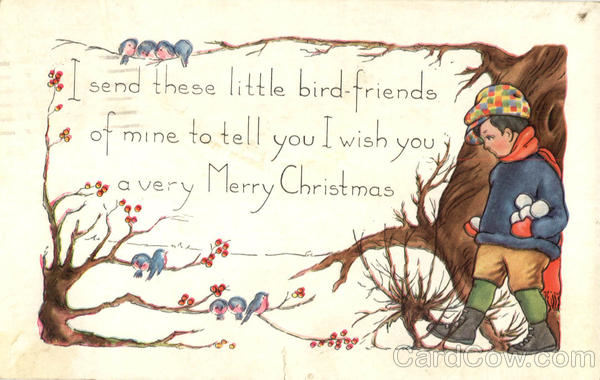 I send these little bird-friends
of mine to tell you I wish you
a very Merry Christmas
CardCow.com